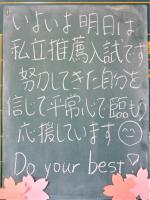 いよいよ明日は
私立推薦入試です
努力してきた自分を
信じて平常心で臨もう
応援しています
Do your best!